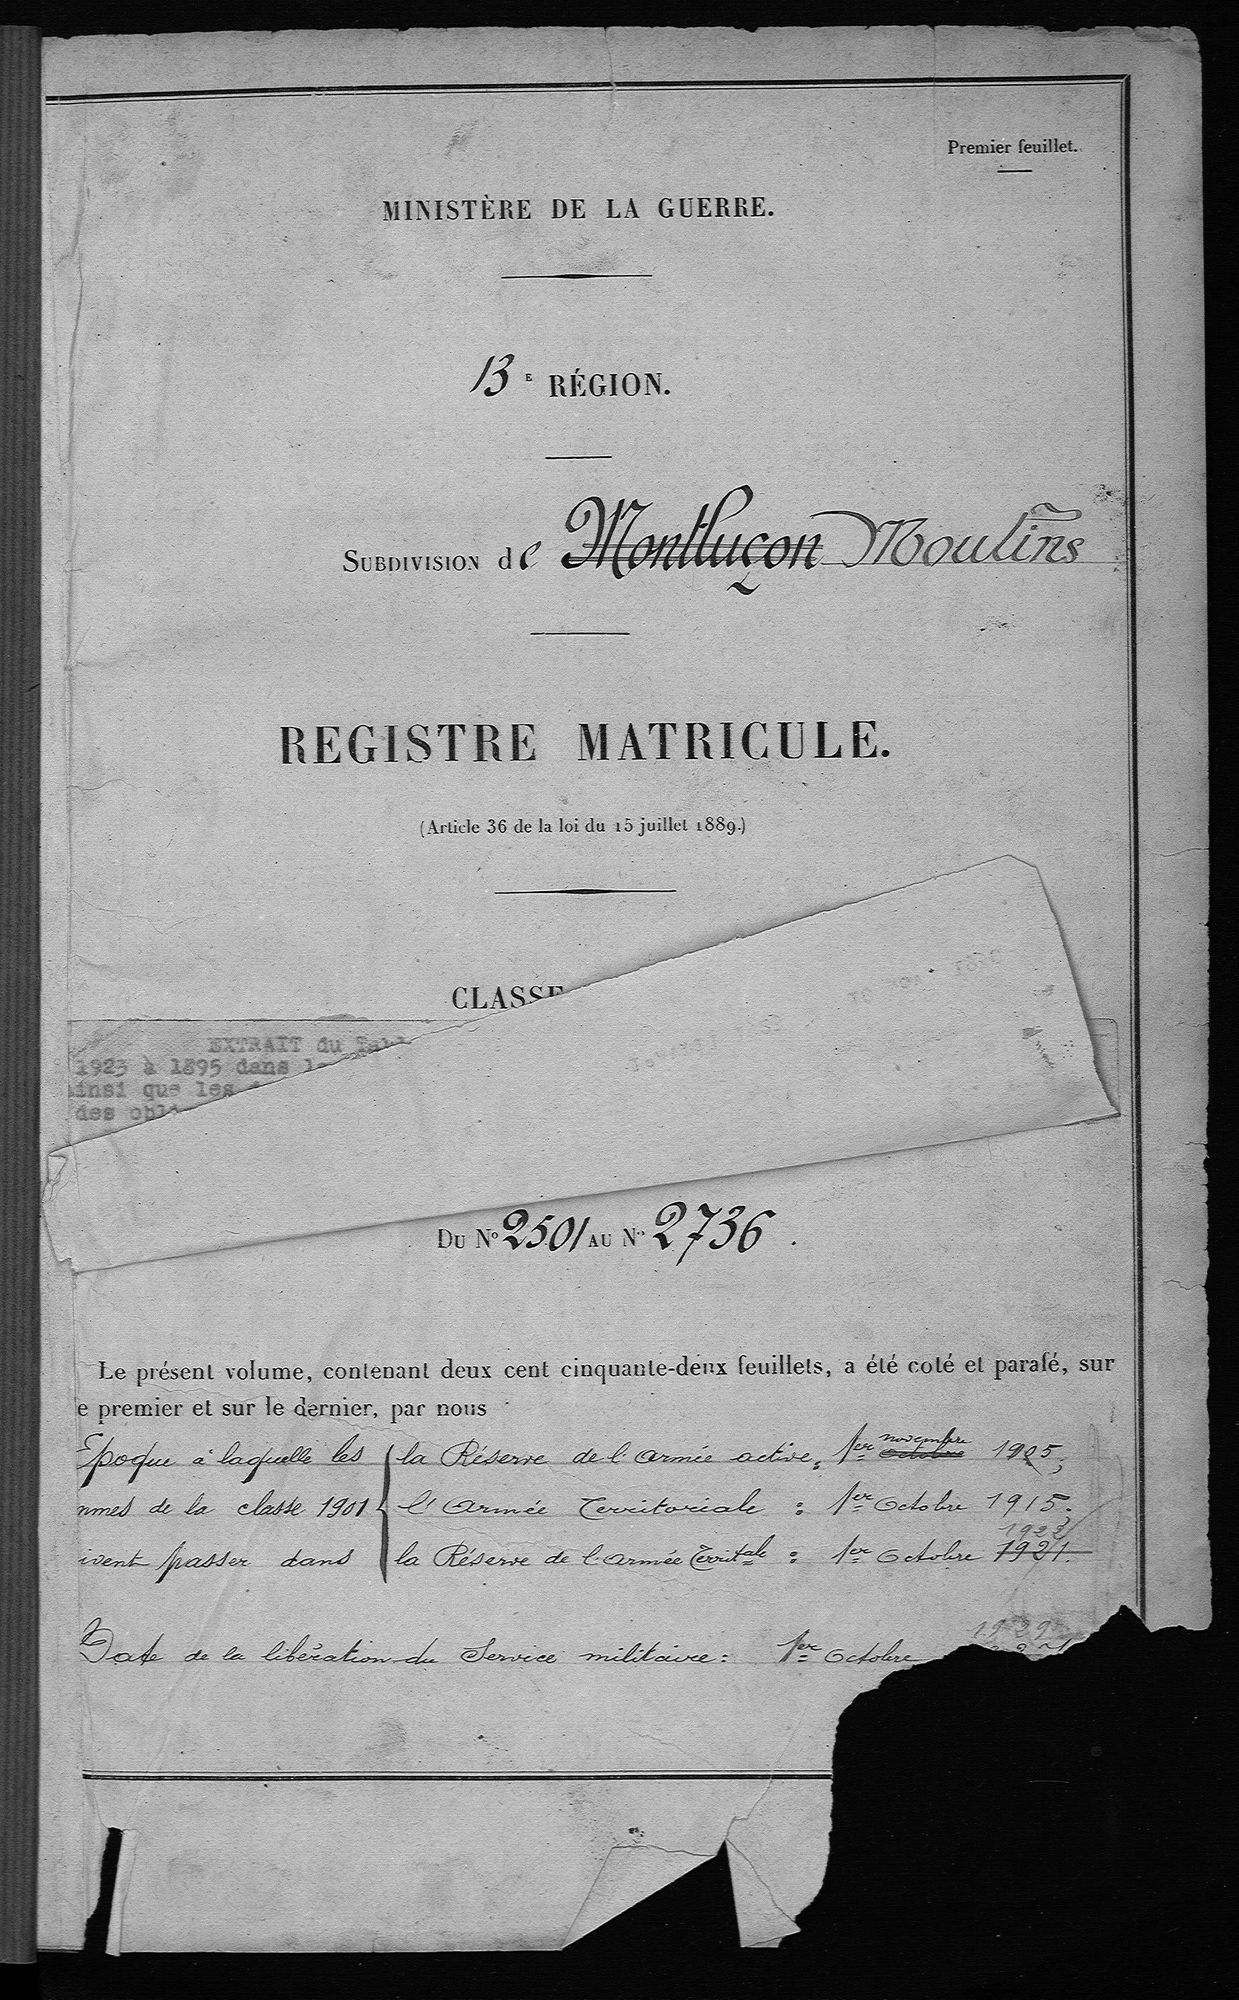 Premier feuillet.
MINISTÈRE DE LA GUERRE.
13E RÉGION.
SUBDIVISION de Montluçon Moulins
REGISTRE MATRICULE.
(Article 36 de la loi du 15 juillet 1889.)
CLASSE
EXTRAIT du
1923 à 1895 dans
insi que les
des
DU No 2501 AU No 2736.
Le présent volume, contenant deux cent cinquante-deux feuillets, a été coté et parafé, sur
e premier et sur le dernier, par nous
novembre
Epoque à laquelle les { la Réserve de l'Armée active, 1er octobre 1905;
mmes de la classe 1901 { l'Armée Territoriale : 1er Octobre 1915;
1922
ivent passer dans { la Réserve de l'armée Territale : 1er Octobre 1921.
1929
Date de la libération du Service militaire : 1er Octobre